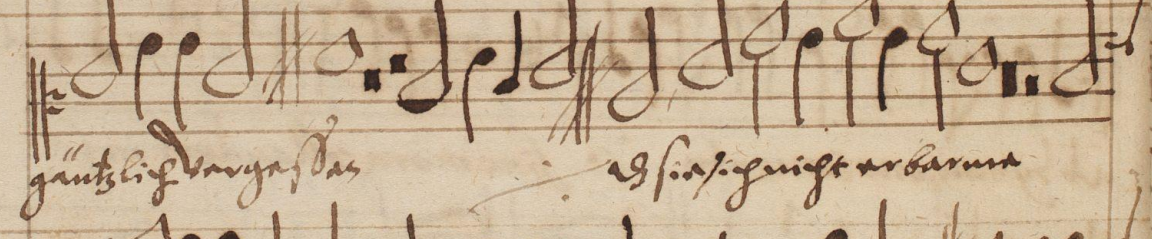 gäntzlich vergessen dß sie sich nicht erbarme